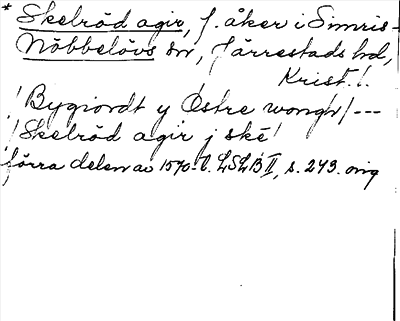 * Skelröd agir, f. åker i Simris-
Nöbbelövs sn, Järrestads hd,
Krist. l.
! Bygiordt y Østre wongh / ---
/ Skelröd agir j ské !
förra delen av 1570-t. LSLB II, s. 293. orig